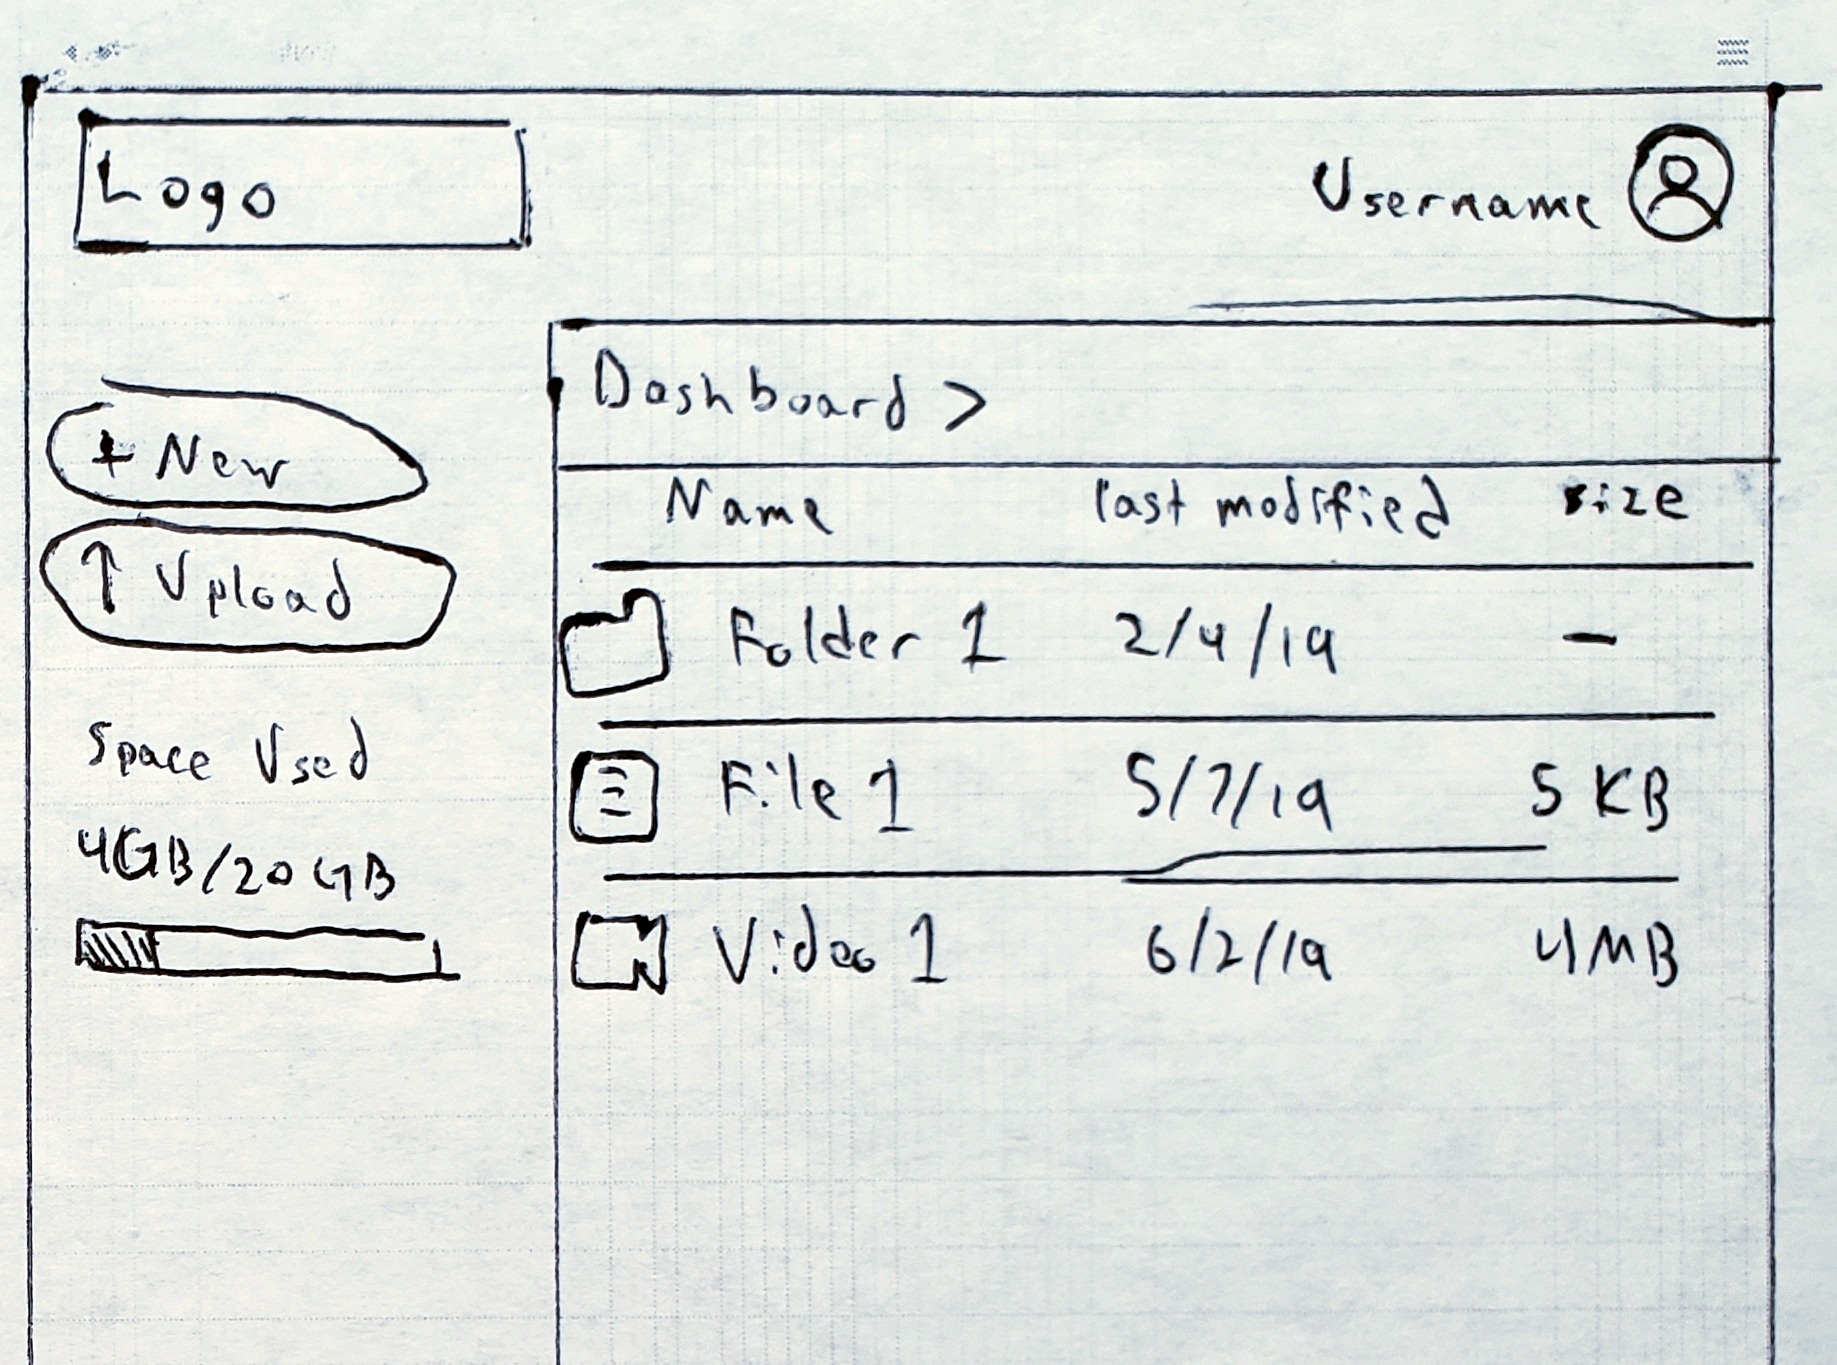 Logo
Username
+ New
↑ Upload
Space Used
4GB/20GB
Dashboard >
Name last modified size
Folder 1 2/4/19 —
File 1 5/7/19 5 KB
Video 1 6/2/19 4MB